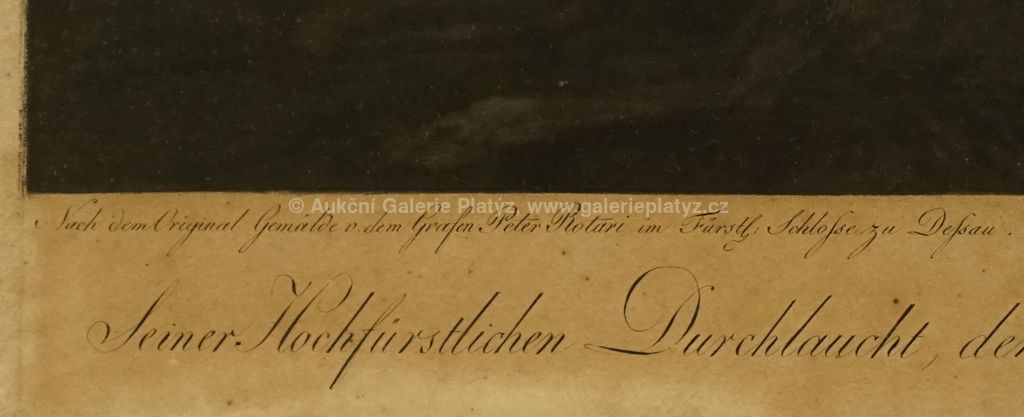 © Aukční Galerie Platýz, www.galerieplatyz.cz
Nach dem Original Gemälde v. dem Grafen Peter Rotari im Fürstl: Schloſse zu Deſsau.
Seiner Hochfürstlichen Durchlaucht, der